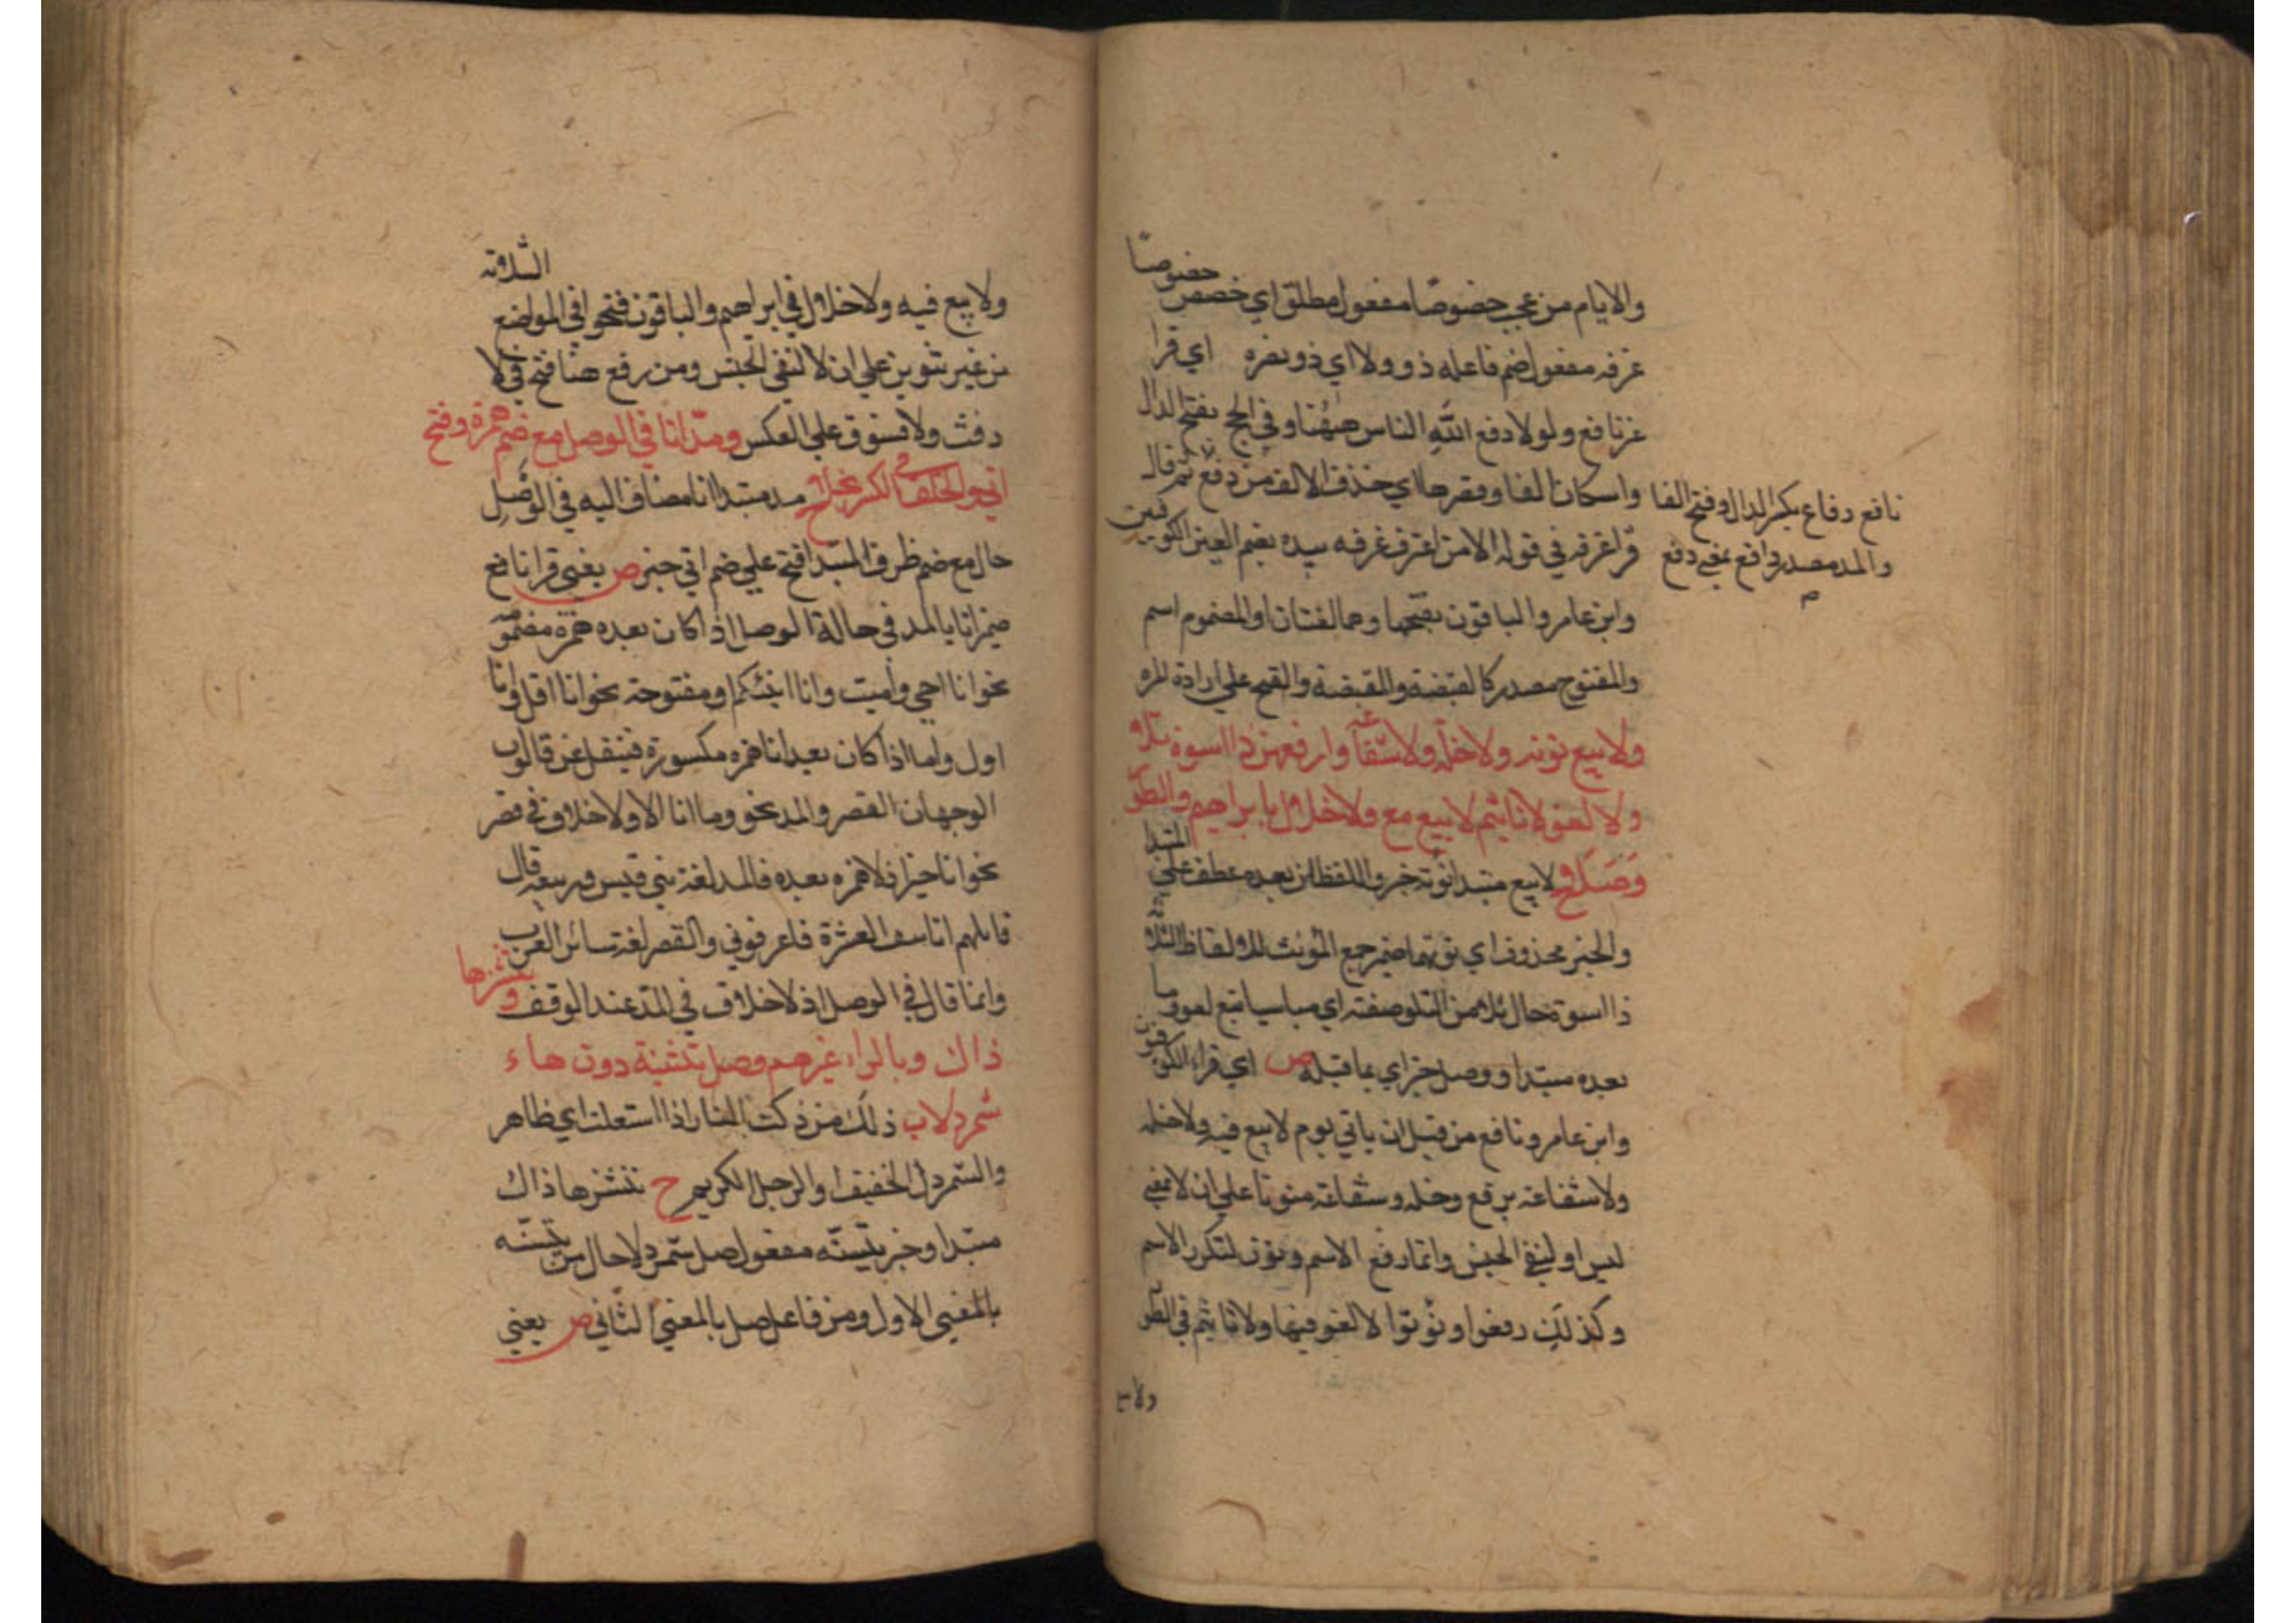 والايام من عجب خصوصا مفعول مطلق اي خصص خصوصا
غرفه مفعول ضم فاعله ذو ولا اي ذو نصره اي قرا
غير نافع ولولا دفع الله الناس ههنا وفي الحج بفتح الدال
واسكان الفا وقصرها اي حذف الالف من دفع ثم قال
نافع دفاع بكسر الدال وفتح الفا
والمد مصدر دافع بمعني دفع
م
قرا غرفه في قوله الا من اغترف غرفه بيده بضم العين الكوفيين
وابن عامر والباقون بفتحها وهما لغتان او المضموم اسم
والمفتوح مصدر كالقبضة والقبضة والفتح علي ارادة المره
ولا بيع نونه ولا خلة ولا شفاعه وارفعهن ذا اسوة تلا
ولا لغو لا تاثيم لا بيع مع ولا خلال بابراهيم والطور
وصلا ح لا بيع مبتدا نونه خبر واللفظان بعده عطف علي المبتدا
والخبر محذوف اي نونهما ضمير جمع المونث للالفاظ الثلاثة
ذا اسوة حال تلا من التلو صفته اي مباسيا تبع لغو وما
بعده مبتدا ووصل خبر اي بما قبله ص اي قراء الكوفيون
وابن عامر ونافع من قبل ان ياتي يوم لا بيع فيه ولا خله
ولا شفاعة برفع وخله وشفاعة منونا علي ان لا بمعني
ليس او لنفي الجنس وانما رفع الاسم ونون لتكرر الاسم
وكذلك رفعوا ونونوا لا لغو فيها ولا تاثيم في الطور
ولا بيع
ولا بيع فيه ولا خلال في ابراهيم والباقون فتحوا في المواضع الثلاثه
من غير تنوين علي ان لا لنفي الجنس ومن رفع هنا فتح في لا
رفث ولا فسوق علي العكس ومد انا في الوصل مع ضم همزة وفتح
اتي والخلف في الكسر بجلا ح مد مبتدا انا مضاف اليه في الوصل
حال مع ضم ظرف المبتدا فتح علي ضم اتي خبر ص يعني قرا نافع
ضمير انا بالمد في حالة الوصل اذا كان بعده همزة مضمومه
نحو انا احيي واميت وانا انبئكم او مفتوحة نحو انا اقل وانا
اول واما اذا كان بعد انا همزه مكسورة فينقل عن قالون
الوجهان القصر والمد نحو وما انا الا ولا خلاف في قصر
نحو انا خير اذ لا همزه بعده فالمد لغة بني قيس وربيعه قال
قايلهم انا سيف العشرة فاعرفوني والقصر لغة سائر العرب
وانما قال في الوصل اذ لا خلاف في المد عند الوقف وننشزها
ذاك وبالراء غيرهم وصل يتسنه دون هاء
شمردلا ب ذلك من ذكت النار اذا اشتعلت اي ظاهر
والشمردل الخفيف او الرجل الكريم ح ننشزها ذاك
مبتدا وخبر يتسنه مفعول صل شمردلا حال من يتسنه
بالمعني الاول ومن فاعل صل بالمعني الثاني ص يعني